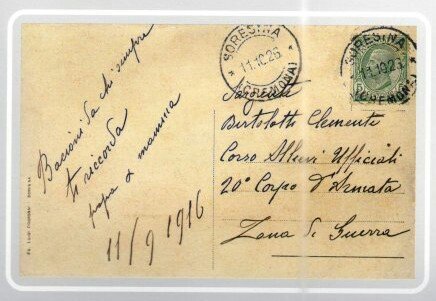 Bacioni da chi sempre
ti riccorda
papa e mamma
11/9 1916
SORESINA
11.10.26
(CREMONA)
SORESINA
11.10.26
(CREMONA)
Sargente
Bertolotti Clemente
Corso Allievi Ufficiali
20° Corpo D'Armata
Zona di Guerra